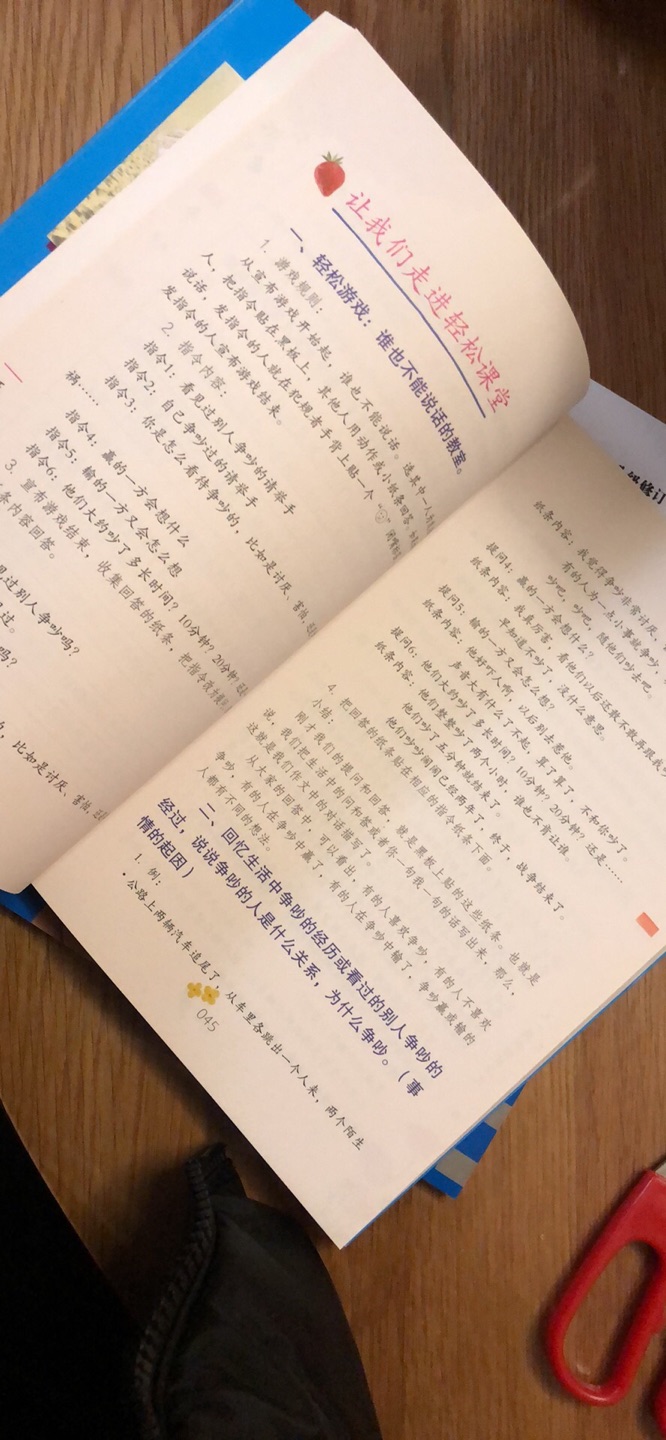 让我们走进轻松课堂
一、轻松游戏：谁也不能说话的教室。
1. 游戏规则：
从宣布游戏开始起，谁也不能说话。选其中一人
人，把指令贴在黑板上，其他人用动作或小纸条回答。
说话，发指令的人就在犯规者手背上贴一个
发指令的人宣布游戏结束。
2. 指令内容：
指令1：看见过别人争吵的请举手
指令2：自己争吵过的请举手
指令3：你是怎么看待争吵的，比如是讨厌、害怕、
祸……
指令4：赢的一方会想什么
指令5：输的一方又会怎么想
指令6：他们大约吵了多长时间？10分钟？20分钟？
3. 宣布游戏结束，收集回答的纸条，把指令
条内容回答。
见过别人争吵吗？
见过。
吗？
的，比如是讨厌、害怕、
纸条内容：我觉得争吵非常讨厌、
有的人为一点小事就争吵，
吵吧，吵吧，随他们吵去吧。
提问4：赢的一方会想什么？
纸条内容：我真厉害，看他们以后还敢不敢再跟我
早知道不吵了，没什么意思。
提问5：输的一方又会怎么想？
纸条内容：他好吓人啊，以后别去惹他。
声音大有什么了不起，算了算了，不和你吵了。
提问6：他们大约吵了多长时间？10分钟？20分钟？还是……
纸条内容：他们整整吵了两个小时，谁也不肯让谁。
他们吵了五分钟就结束了。
他们吵吵闹闹已经两年了，终于，战争结束了。
4. 把回答的纸条贴在相应的指令纸条下面。
小结：
刚才我们的提问和回答，就是黑板上贴的这些纸条。也就是
说，我们把生活中的问和答或者你一句我一句的话写出来，那么，
这就是我们作文中的对话描写了。
从大家的回答中，可以看出，有的人喜欢争吵，有的人不喜欢
争吵，有的人在争吵中赢了，有的人在争吵中输了，争吵赢或输的
人都有不同的想法。
二、回忆生活中争吵的经历或看过的别人争吵的
经过，说说争吵的人是什么关系，为什么争吵。（事
情的起因）
1. 例：
·公路上两辆汽车追尾了，从车里各跳出一个人来，两个陌生
045
修订